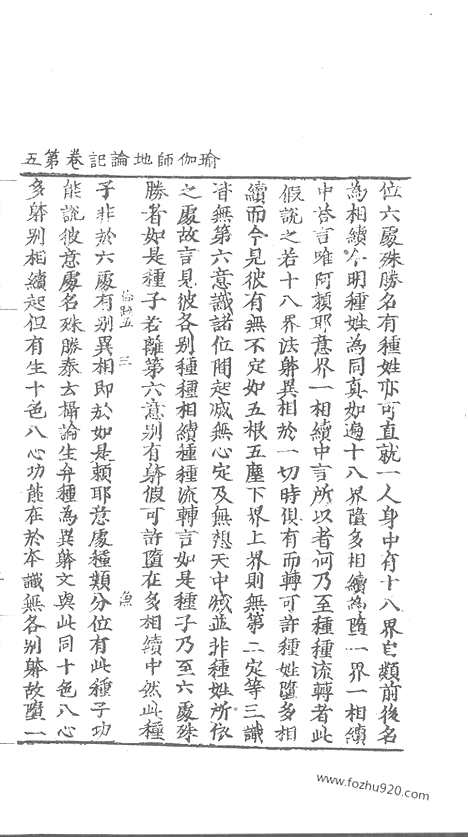 瑜伽師地論記卷第五
位六處殊勝名有種姓亦可直就一人身中有十八界自類前後名
為相續今明種姓為同真如遍十八界墮多相續為墮一界一相續
中荅言唯阿頼耶意界一相續中言所以者何乃至種種流轉者此
假說之若十八界法躰異相於一切時俱有而轉可許種姓墮多相
續而今見彼有無不定如五根五塵下界上界則無第二定等三識
皆無第六意識諸位間起滅無心定及無想天中滅並非種姓所依
之處故言見彼各別種種相續種種流轉言如是種子乃至六處殊
勝者如是種子若離第六意別有躰假可許墮在多相續中然此種
倫記五 三 魚
子非於六處有別異相即於如是頼耶意處種類分位有此種子功
能說彼意處名殊勝泰云攝論生弁種為異躰文與此同十色八心
多躰別相續起但有生十色八心功能在於本識無各別躰故墮一
www.fozhu920.com